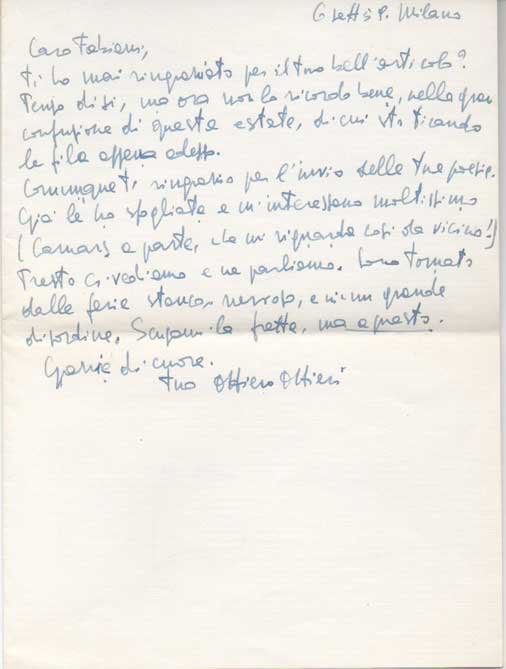 6 sett P. Milano
Caro Fabiani,
ti ho mai ringraziato per il tuo bell'articolo?
Penso di sì, ma ora non lo ricordo bene, nella gran
confusione di questa estate, di cui sto tirando
le fila appena adesso.
Comunque ti ringrazio per l'invio delle tue poesie.
Già le ho sfogliate e m'interessano moltissimo
( a parte, che mi riguarda così da vicino!)
Presto ci vediamo e ne parliamo. Sono tornato
dalle ferie stanco, nervoso, e in un grande
disordine. Scusami la fretta, ma a presto.
Grazie di cuore.
tuo Ottiero Ottieri